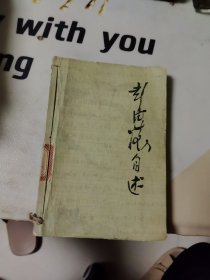 with you
ng
彭德怀自述